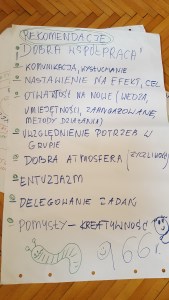 REKOMENDACJE
DOBRA WSPÓŁPRACA!
KOMUNIKACJA, WYSŁUCHANIE
NASTAWIENIE NA EFEKT, CEL
OTWARTOŚĆ NA NOWE (WIEDZA,
UMIEJĘTNOŚCI, ZAANGAŻOWANIE
METODY DZIAŁANIA)
UWZGLĘDNIENIE POTRZEB W
GRUPIE
DOBRA ATMOSFERA (ŻYCZLIWOŚĆ)
ENTUZJAZM
DELEGOWANIE ZADAŃ
POMYSŁY - KREATYWNOŚĆ